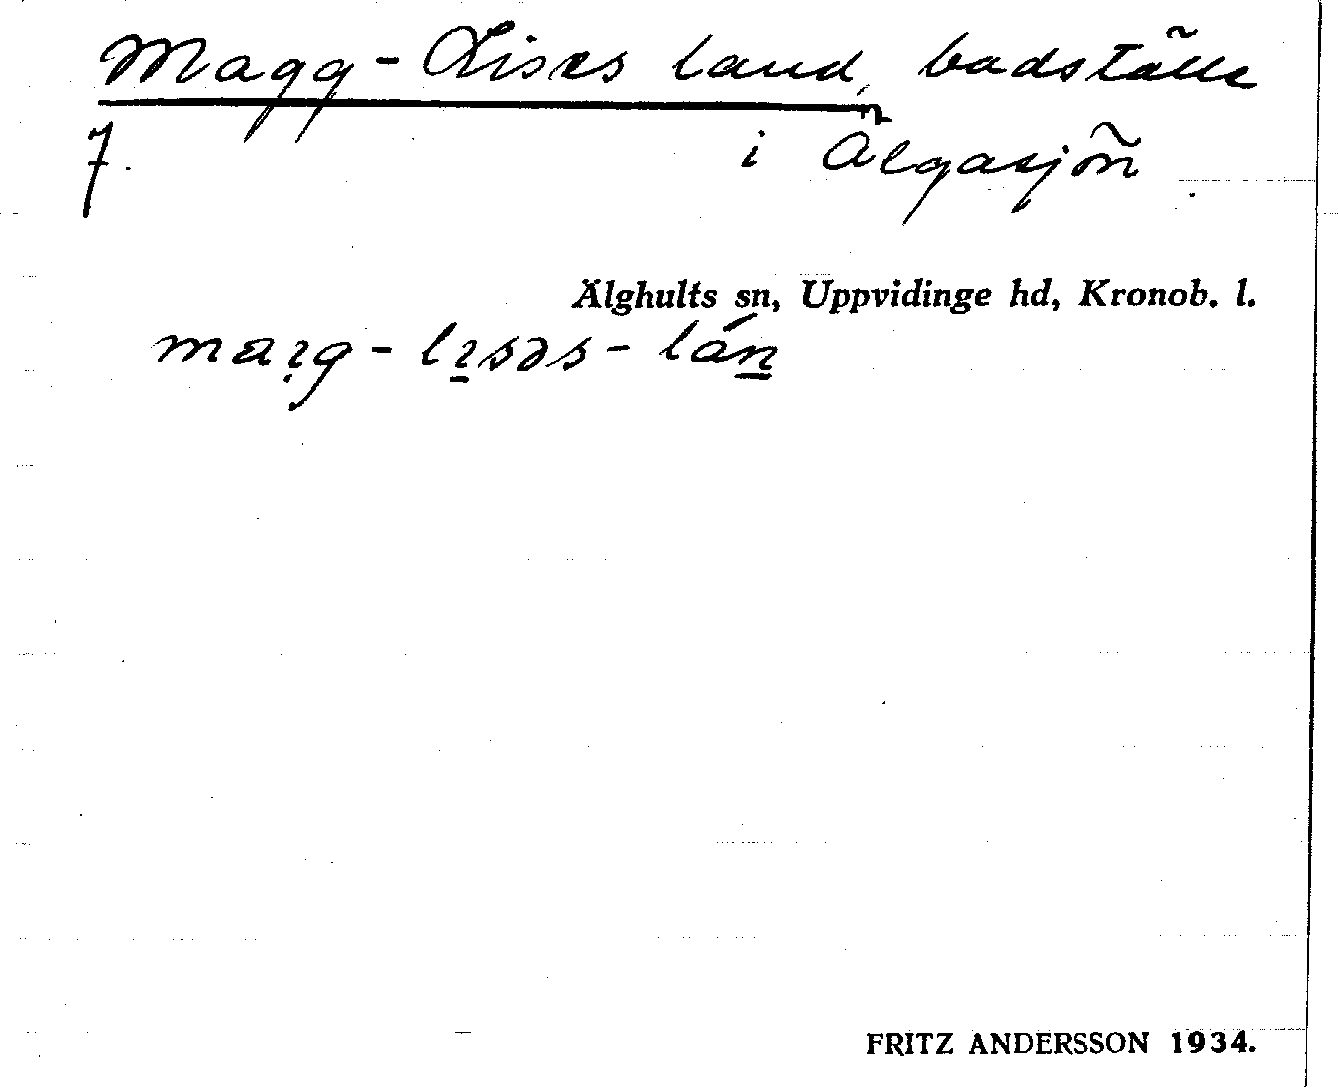 Magg-Lises land, badställe
7. i Älgasjön
Älghults sn, Uppvidinge hd, Kronob. l.
maıg-lısəs-lán
FRITZ ANDERSSON 1934.